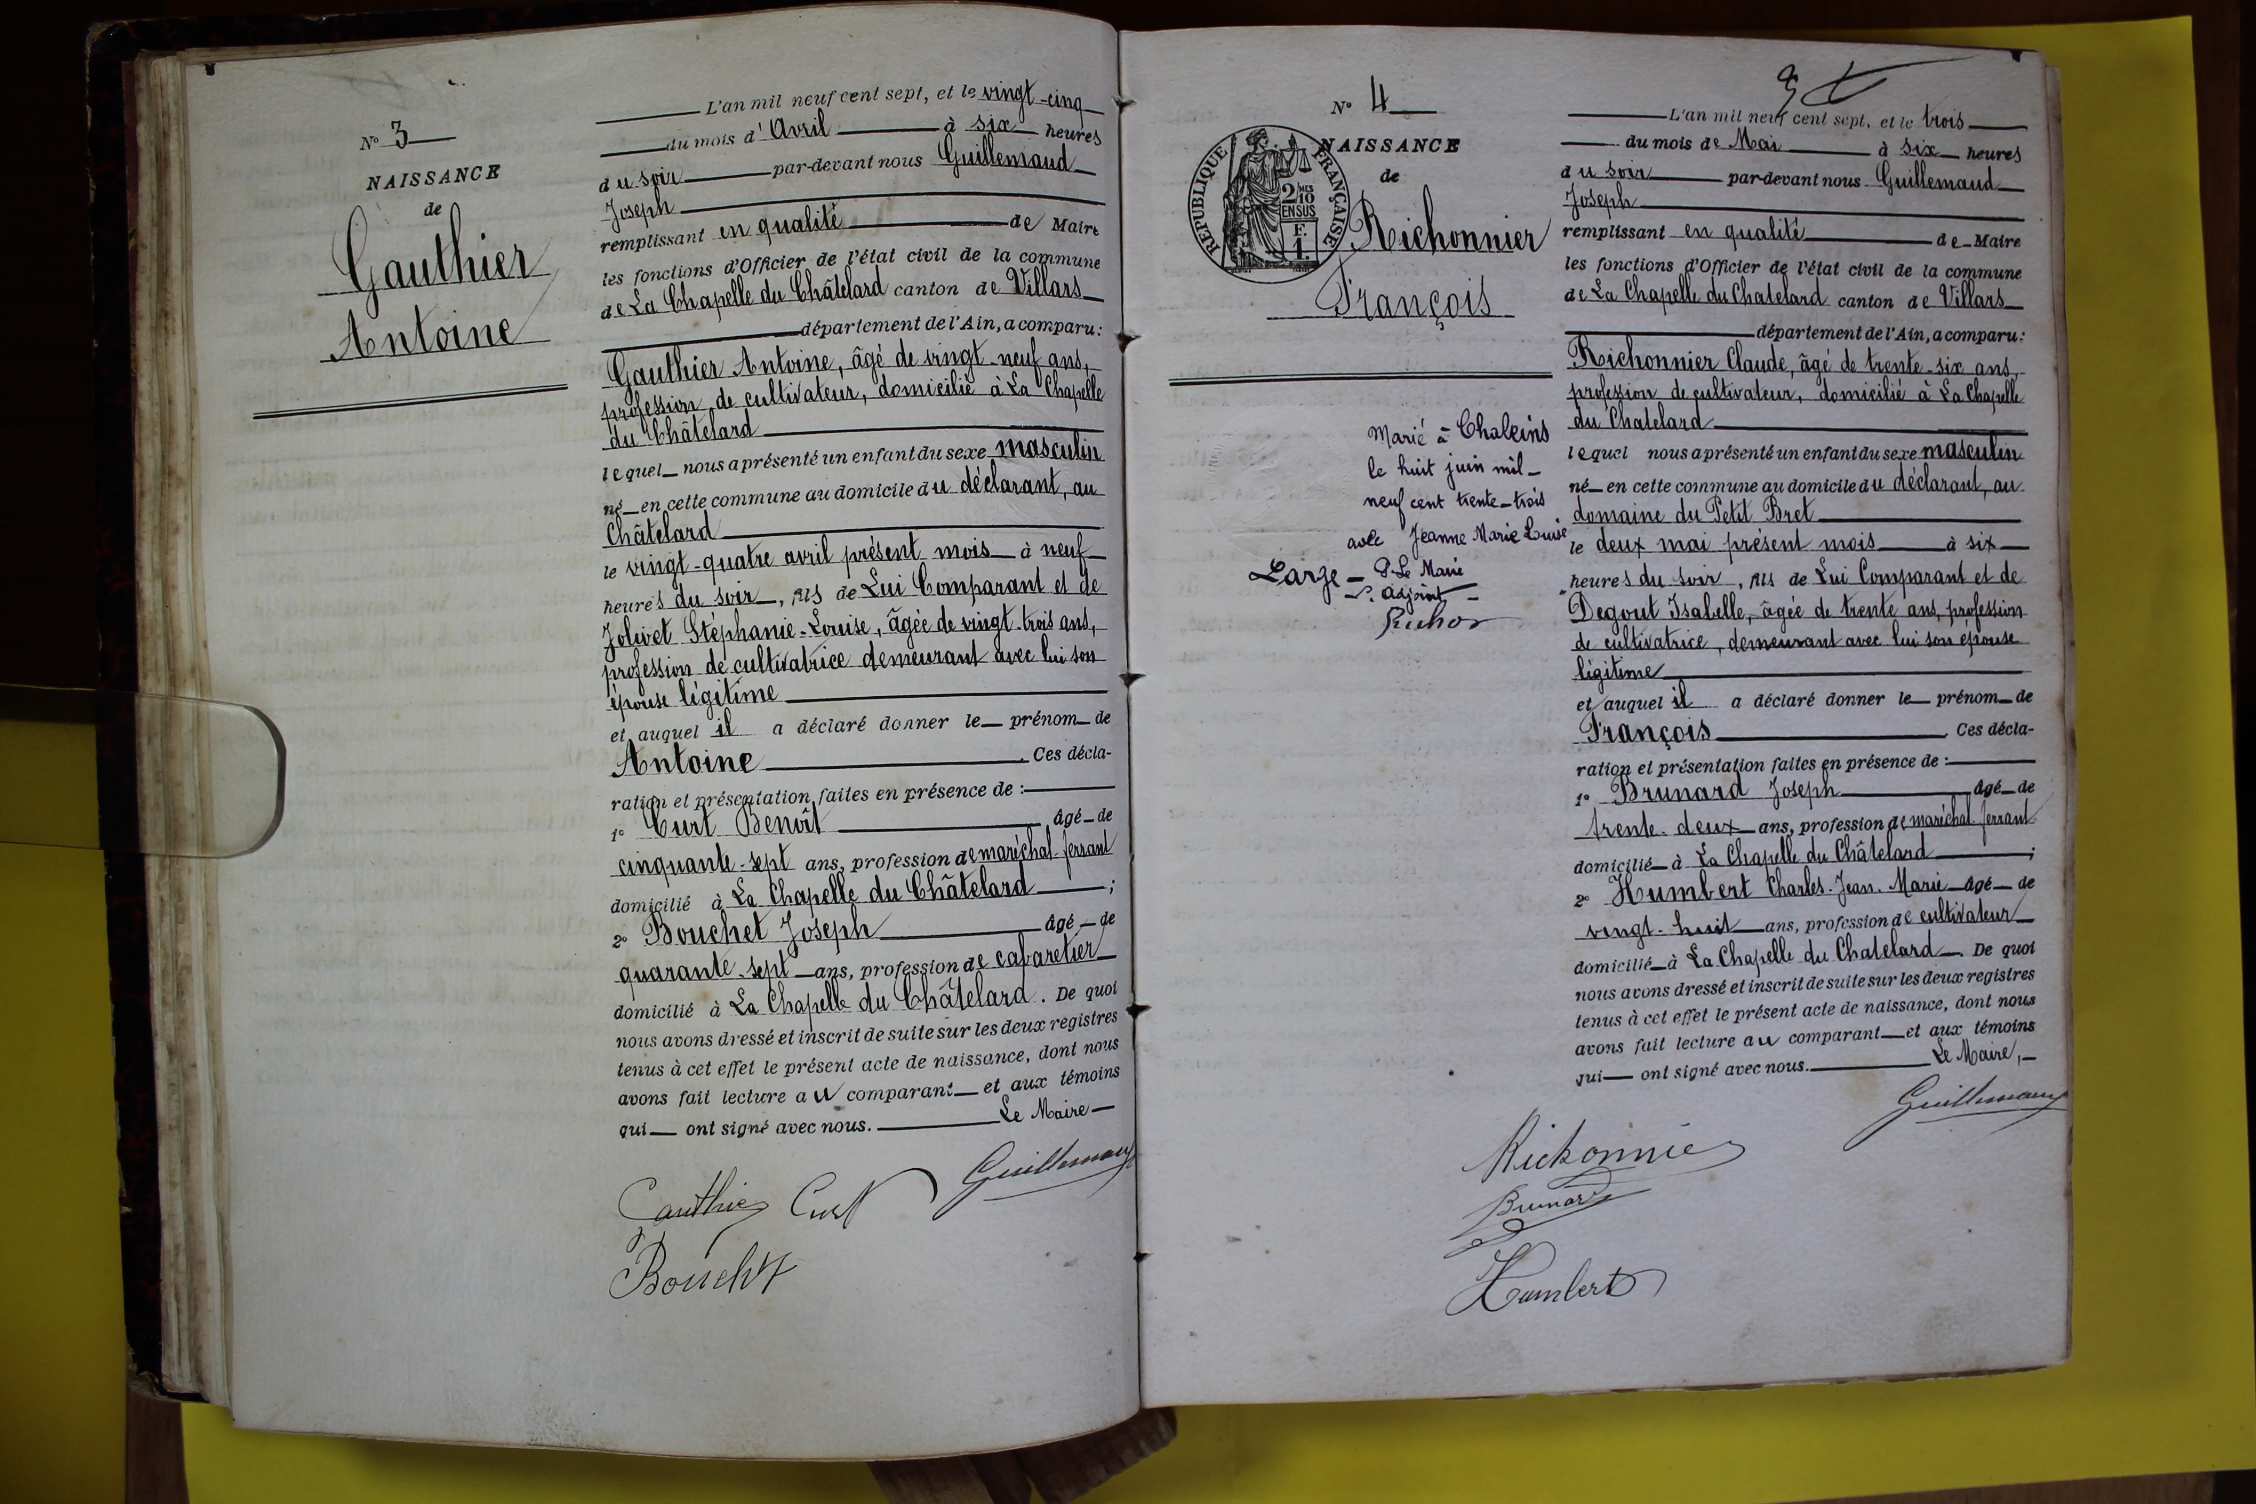 N° 3
NAISSANCE
de
Gauthier
Antoine
L'an mil neuf cent sept, et le vingt-cinq
du mois d'Avril à six heures
du soir par-devant nous Guillemaud
Joseph
remplissant en qualité de Maire
les fonctions d'Officier de l'état civil de la commune
de La Chapelle du Châtelard canton de Villars
département de l'Ain, a comparu :
Gauthier Antoine, âgé de vingt-neuf ans,
profession de cultivateur, domicilié à La Chapelle
du Châtelard
lequel nous a présenté un enfant du sexe masculin
né en cette commune au domicile du déclarant, au
Châtelard
le vingt-quatre avril présent mois à neuf
heures du soir, fils de Lui Comparant et de
Jolivet Stephanie-Louise, âgée de vingt-trois ans,
profession de cultivatrice demeurant avec lui son
épouse légitime
et auquel il a déclaré donner le prénom de
Antoine. Ces décla-
ration et présentation faites en présence de :
1° Curt Benoît âgé de
cinquante-sept ans, profession de maréchal-ferrant
domicilié à La Chapelle du Châtelard ;
2° Bouchet Joseph âgé de
quarante-sept ans, profession de cabaretier
domicilié à La Chapelle du Châtelard. De quoi
nous avons dressé et inscrit de suite sur les deux registres
tenus à cet effet le présent acte de naissance, dont nous
avons fait lecture au comparant et aux témoins
qui ont signé avec nous. Le Maire
Gauthier Curt Guillemaud
Bouchet
N° 4
NAISSANCE
de
RÉPUBLIQUE FRANÇAISE
2/10 MES
EN SUS
F.
1.
Richonnier
François
Marié à Chaleins
le huit juin mil-
neuf cent trente-trois
avec Jeanne Marie Louise
Large - P. Le Maire
adjoint
L'an mil neuf cent sept, et le trois
du mois de Mai à six heures
du soir par-devant nous Guillemaud
Joseph
remplissant en qualité de Maire
les fonctions d'Officier de l'état civil de la commune
de La Chapelle du Chatelard canton de Villars
département de l'Ain, a comparu :
Richonnier Claude, âgé de trente-six ans,
profession de cultivateur, domicilié à La Chapelle
du Chatelard
lequel nous a présenté un enfant du sexe masculin
né en cette commune au domicile du déclarant, au
domaine du Petit Bret
le deux mai présent mois à six
heures du soir, fils de Lui Comparant et de
Degout Isabelle, âgée de trente ans, profession
de cultivatrice, demeurant avec lui son épouse
légitime
et auquel il a déclaré donner le prénom de
François. Ces décla-
ration et présentation faites en présence de :
1° Brunard Joseph âgé de
trente-deux ans, profession de maréchal-ferrant
domicilié à La Chapelle du Châtelard ;
2° Humbert Charles-Jean-Marie âgé de
vingt-huit ans, profession de cultivateur
domicilié à La Chapelle du Chatelard. De quoi
nous avons dressé et inscrit de suite sur les deux registres
tenus à cet effet le présent acte de naissance, dont nous
avons fait lecture au comparant et aux témoins
qui ont signé avec nous. Le Maire,
Guillemaud
Richonnier
Brunard
Humbert